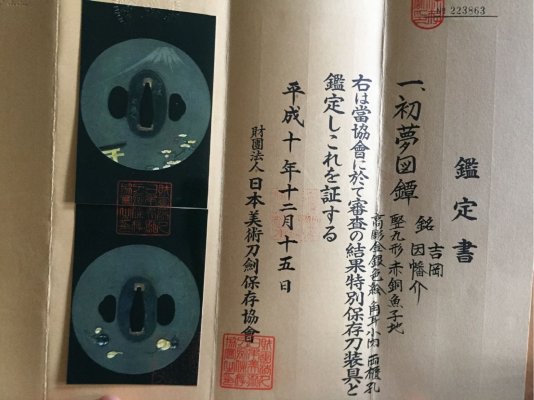 № 223863
鑑定書
一、初夢図鐔
銘 吉岡因幡介
竪丸形 赤銅魚子地
高彫金銀色絵 角耳小肉 両櫃孔
右は當協會に於て審査の結果特別保存刀装具と
鑑定しこれを証する
平成十年十二月十五日
財團法人 日本美術刀劍保存協會